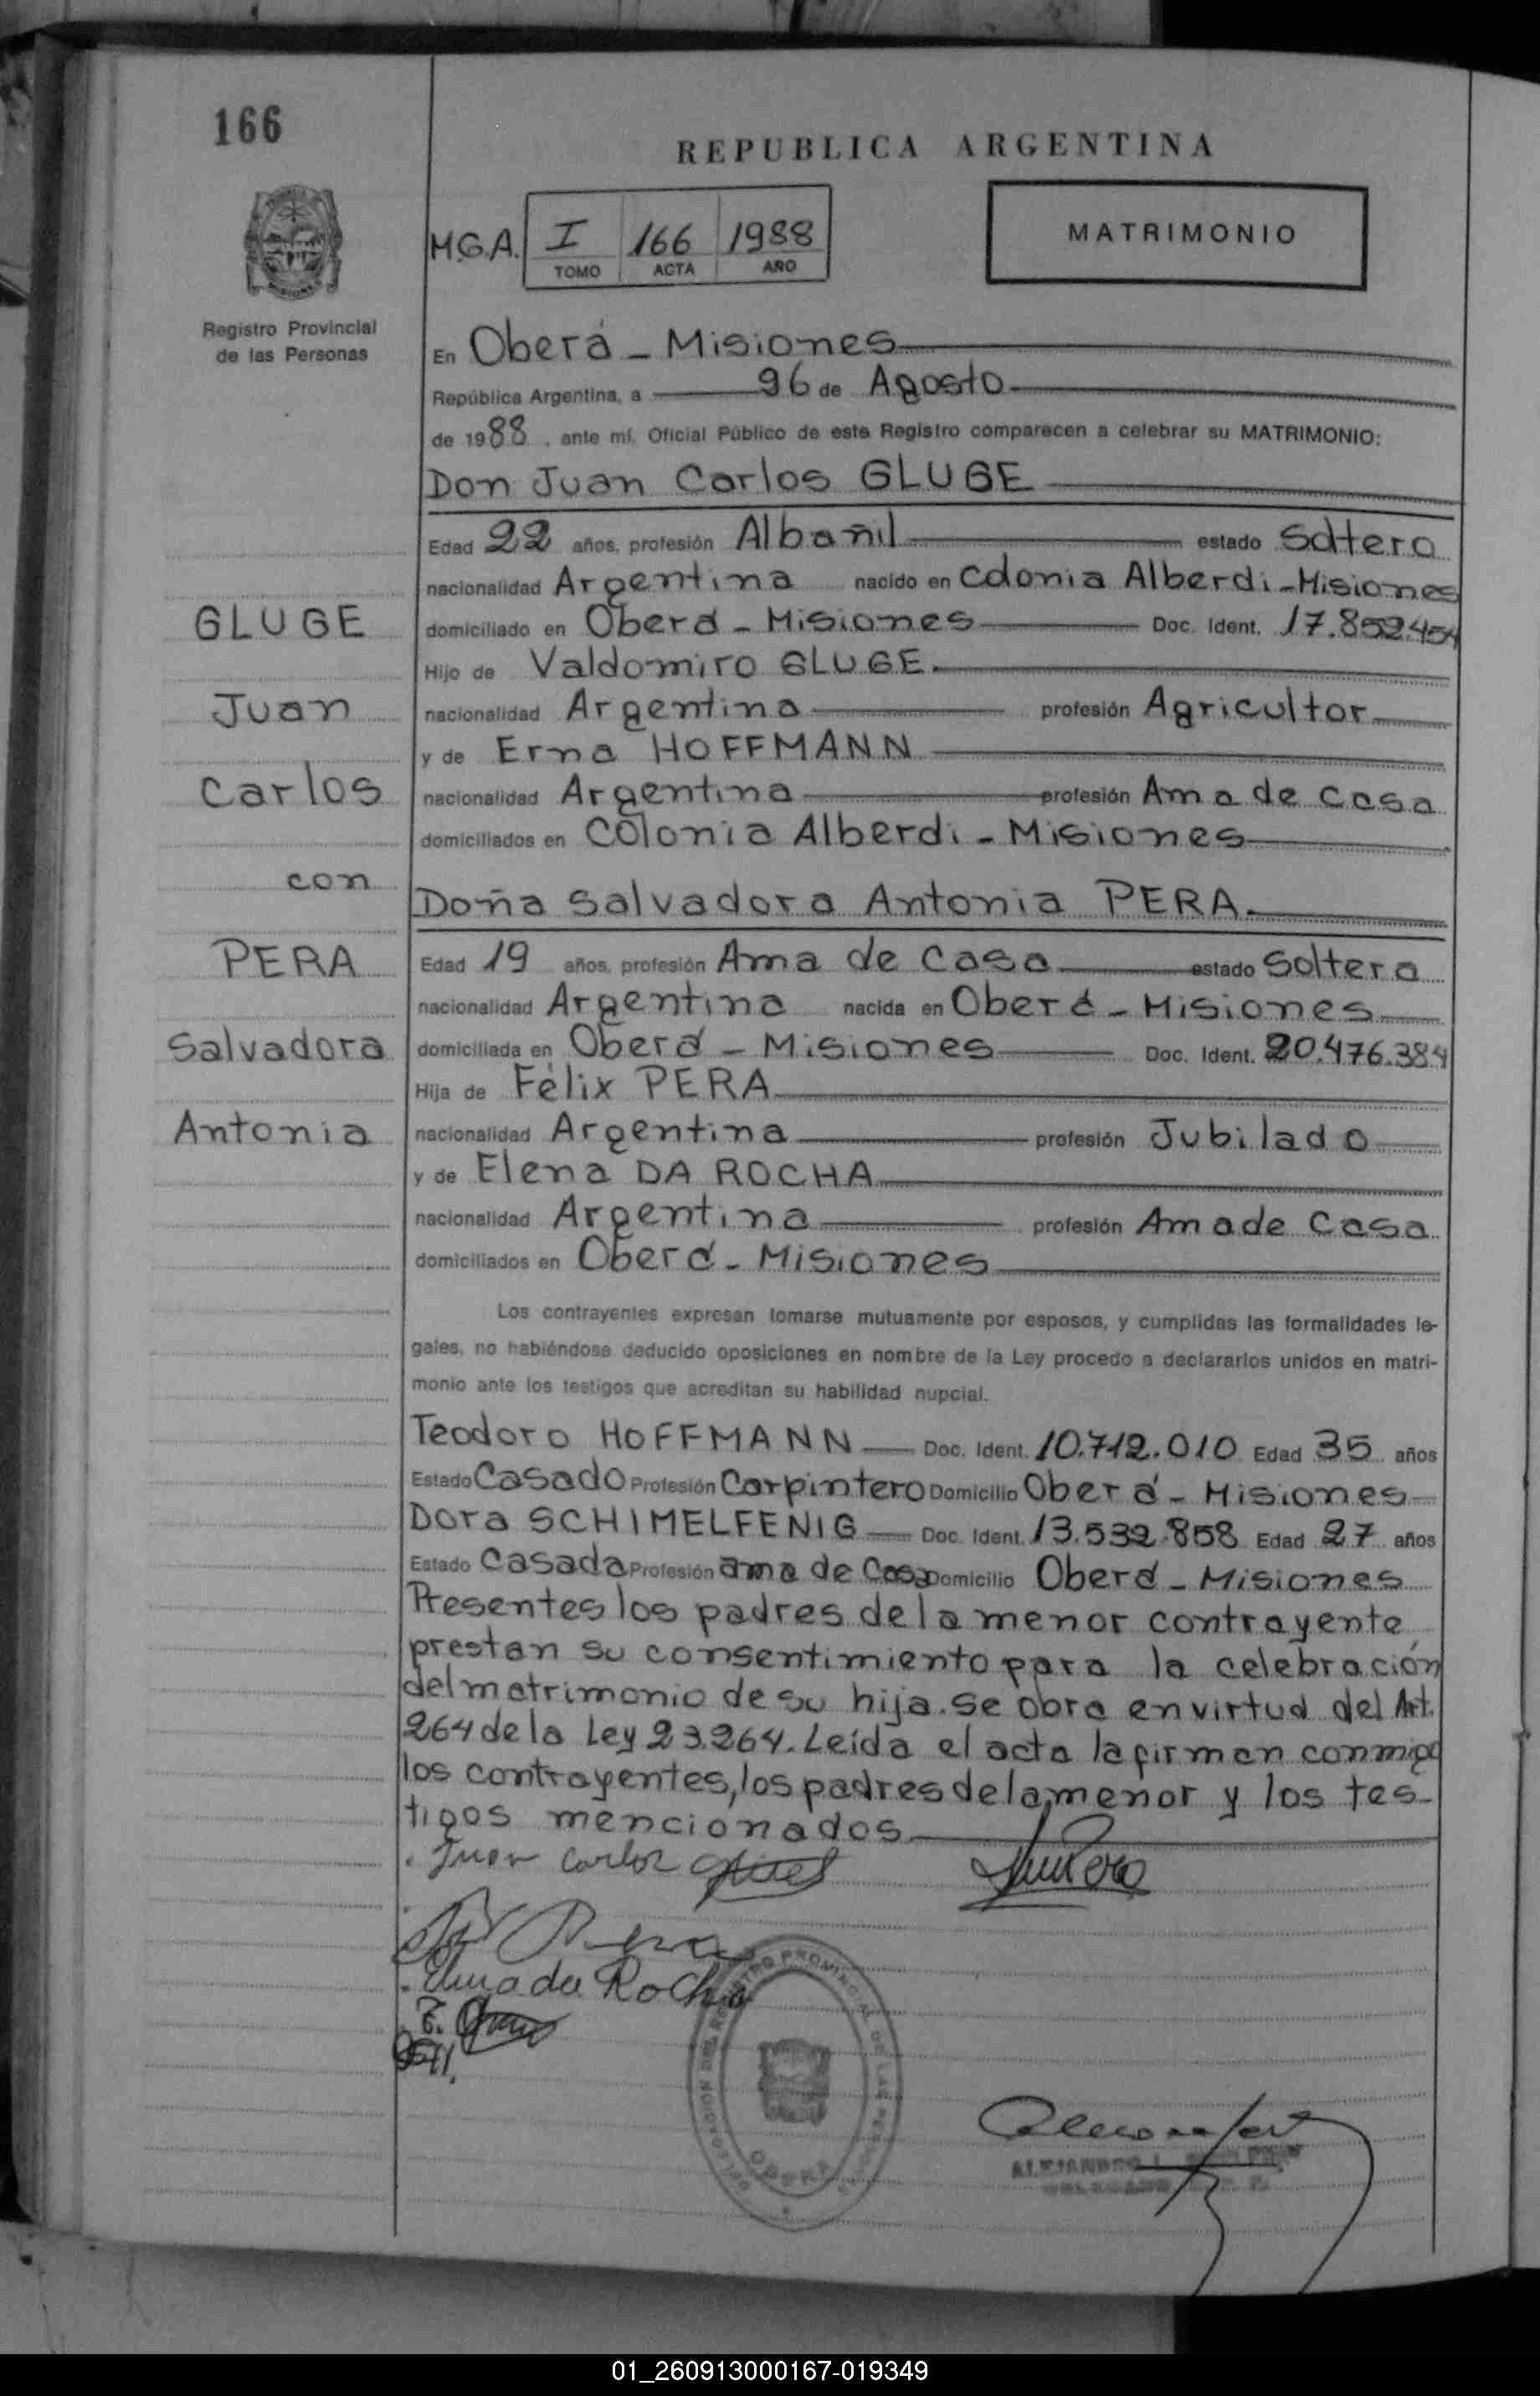 166
REPUBLICA ARGENTINA
M.G.A. I 166 1988
TOMO ACTA AÑO
MATRIMONIO
Registro Provincial
de las Personas
En Oberá - Misiones
República Argentina, a 26 de Agosto
de 1988, ante mí, Oficial Público de este Registro comparecen a celebrar su MATRIMONIO:
Don Juan Carlos GLUGE
Edad 22 años, profesión Albañil estado Soltero
nacionalidad Argentina nacido en Colonia Alberdi - Misiones
GLUGE
domiciliado en Oberá - Misiones Doc. Ident. 17.852.454
Hijo de Valdomiro GLUGE.
Juan
nacionalidad Argentina profesión Agricultor
y de Erna HOFFMANN
Carlos
nacionalidad Argentina profesión Ama de Casa
domiciliados en Colonia Alberdi - Misiones
con
Doña Salvadora Antonia PERA.
PERA
Edad 19 años, profesión Ama de Casa estado Soltera
nacionalidad Argentina nacida en Oberá - Misiones
Salvadora
domiciliada en Oberá - Misiones Doc. Ident. 20.476.384
Hija de Félix PERA
Antonia
nacionalidad Argentina profesión Jubilado
y de Elena DA ROCHA
nacionalidad Argentina profesión Ama de Casa
domiciliados en Oberá - Misiones
Los contrayentes expresan tomarse mutuamente por esposos, y cumplidas las formalidades le-
gales, no habiéndose deducido oposiciones en nombre de la Ley procedo a declararlos unidos en matri-
monio ante los testigos que acreditan su habilidad nupcial.
Teodoro HOFFMANN Doc. Ident. 10.712.010 Edad 35 años
Estado Casado Profesión Carpintero Domicilio Oberá - Misiones
Dora SCHIMELFENIG Doc. Ident. 13.532.858 Edad 27 años
Estado Casada Profesión ama de Casa Domicilio Oberá - Misiones
Presentes los padres de la menor contrayente,
prestan su consentimiento para la celebración
del matrimonio de su hija. Se obra en virtud del Art.
264 de la Ley 23.264. Leída el acta la firman conmigo
los contrayentes, los padres de la menor y los tes-
tigos mencionados
Juan Carlos
da Rocha
REGISTRO PROVINCIAL DE LAS
OBERA
ALEJANDRO
01_260913000167-019349